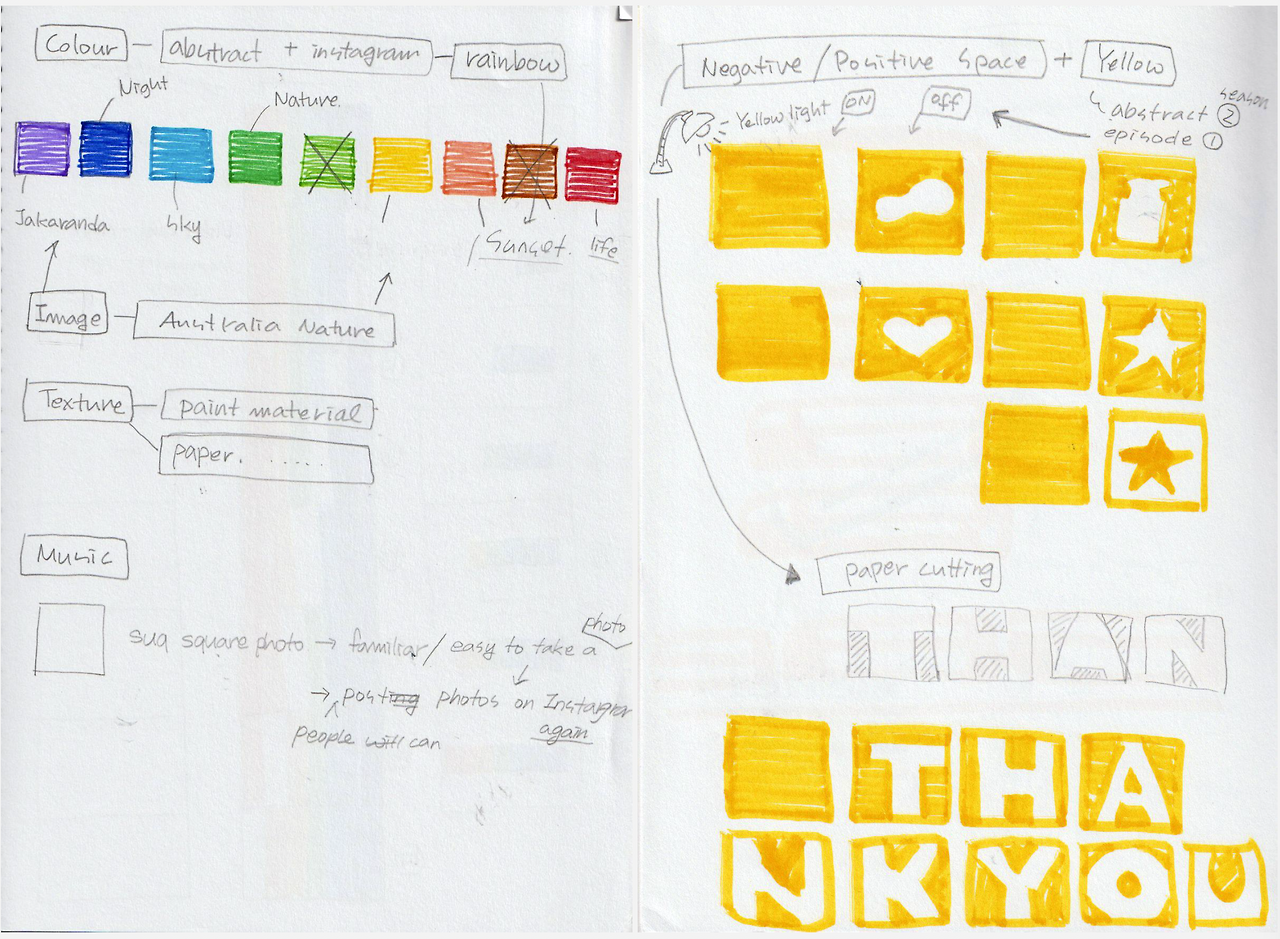 Colour — abstract + instagram — rainbow
Night
Nature.
Jakaranda
sky
Sunset.
life
Image — Australia Nature
Texture — paint material
paper. .....
Music
squ square photo → familiar / easy to take a photo
→ posting photos on Instagram again
people will can
Negative / Positive Space + Yellow
Yellow light
ON
off
abstract season ②
episode ①
paper cutting
THAN
THA
NKYOU